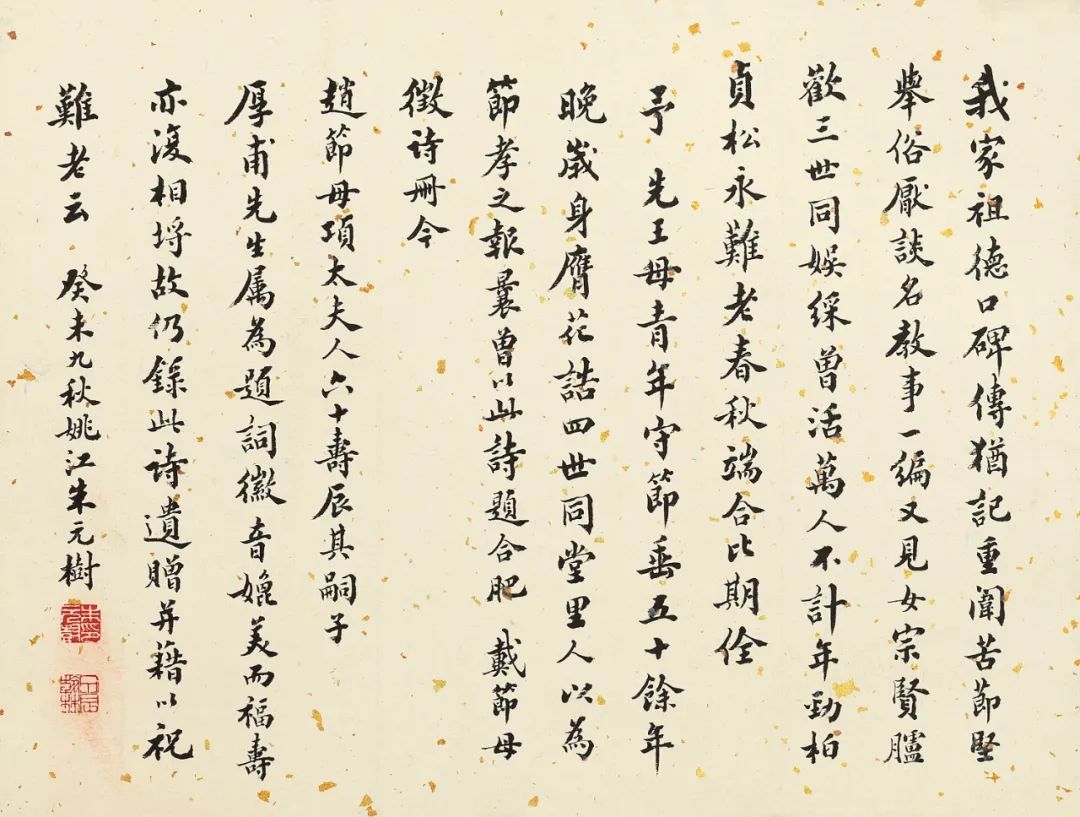 我家祖德口碑傳猶記重闈苦節堅
舉俗厭談名教事一編又見女宗賢臚
歡三世同娛綵曾活萬人不計年勁柏
貞松永難老春秋端合比期佺
予 先王母青年守節垂五十餘年
晚歲身膺花誥四世同堂里人以為
節孝之報曩曾以此詩題合肥 戴節母
徵詩冊今
趙節母項太夫人六十壽辰其嗣子
厚甫先生属為題詞徽音媲美而福壽
亦復相埒故仍錄此詩遺贈并藉以祝
難老云 癸未九秋姚江朱元樹